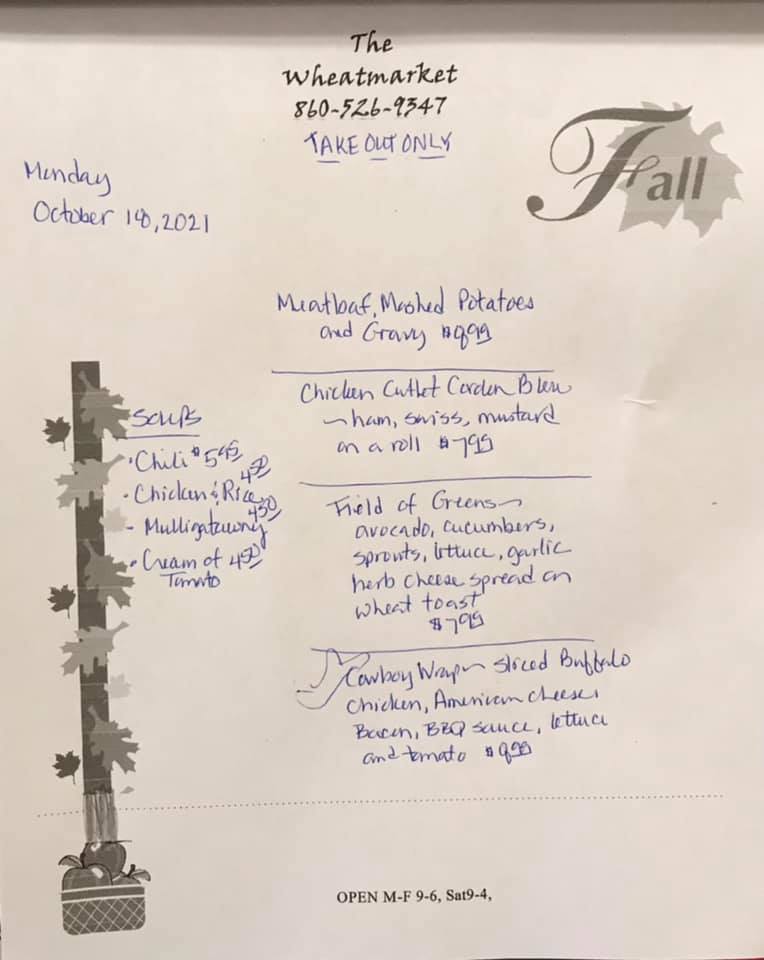 The
Wheatmarket
860-526-9347
TAKE OUT ONLY
Fall
Monday
October 18, 2021
Meatloaf, Mashed Potatoes
and Gravy
Chicken Cutlet Cordon Bleu
~ham, swiss, mustard
on a roll $7.99
Field of Greens~
avocado, cucumbers,
sprouts, lettuce, garlic
herb cheese spread on
wheat toast
$7.99
Cowboy Wrap~ sliced Buffalo
Chicken, American cheese,
Bacon, BBQ sauce, lettuce
and tomato
Soups
• Chili
• Chicken & Rice 4.50
- Mulligatawny 4.50
• Cream of 4.50
Tomato
OPEN M-F 9-6, Sat9-4,